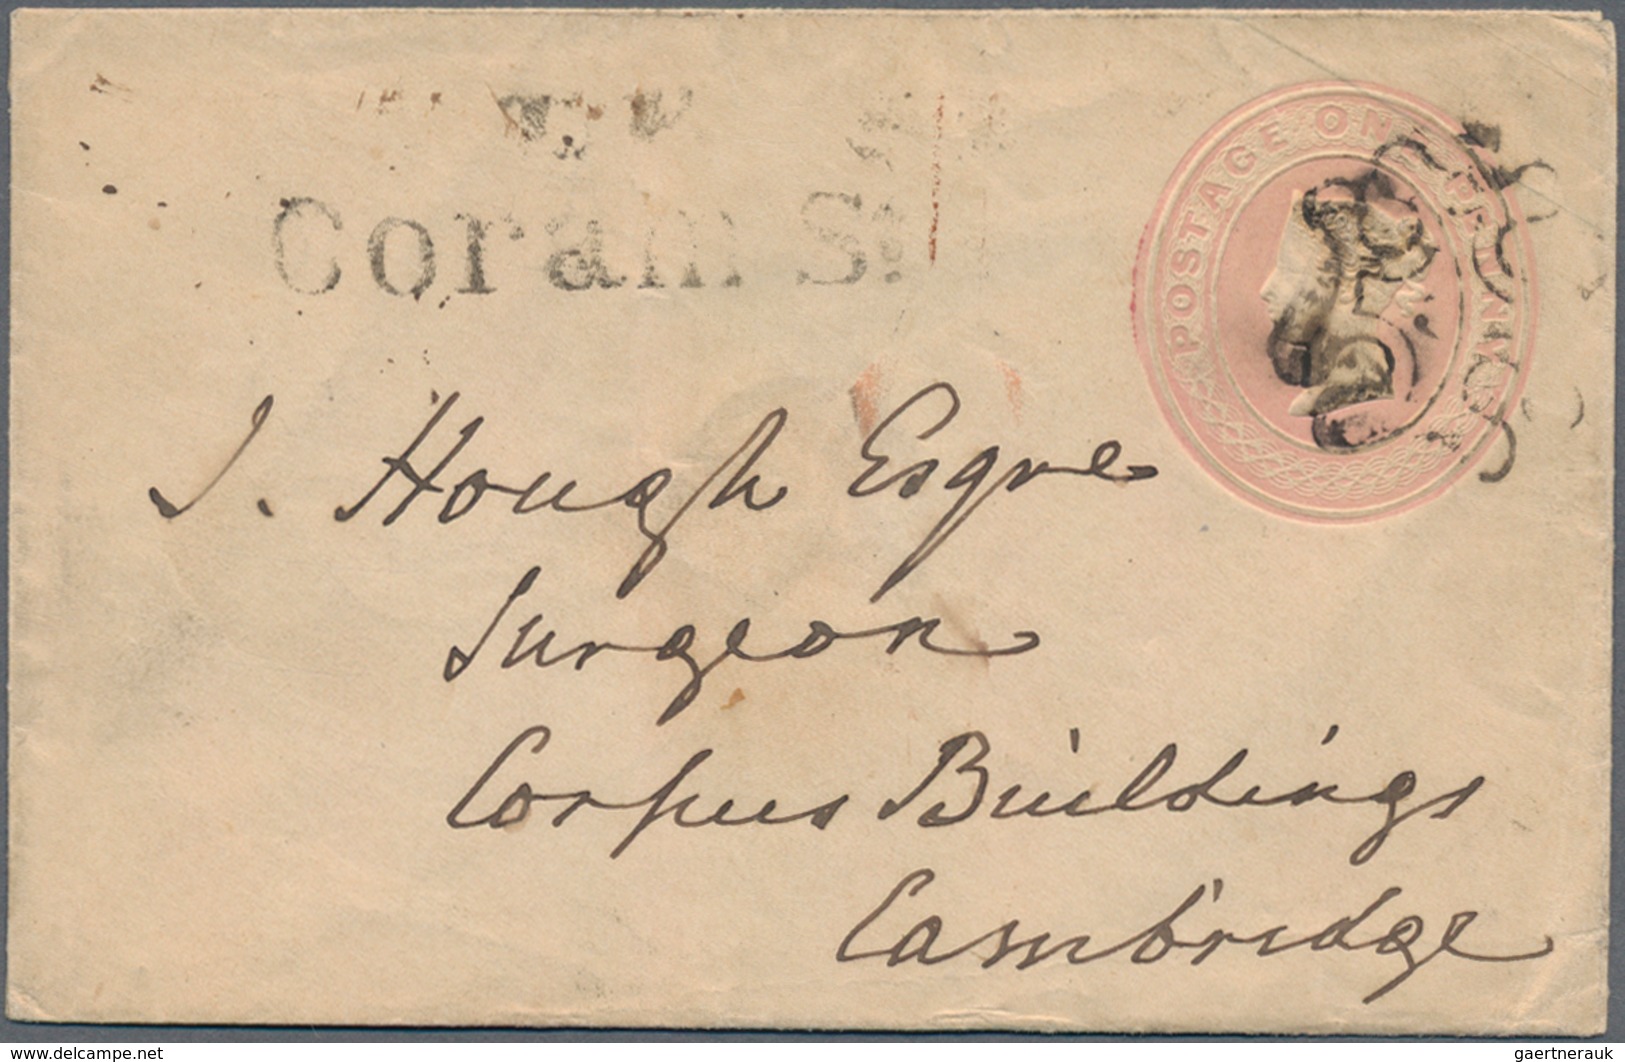 Coram St.
POSTAGE ONE PENNY
J. Hough Esqre
Surgeon
Corpus Buildings
Cambridge
www.delcampe.net
gaertnerauk